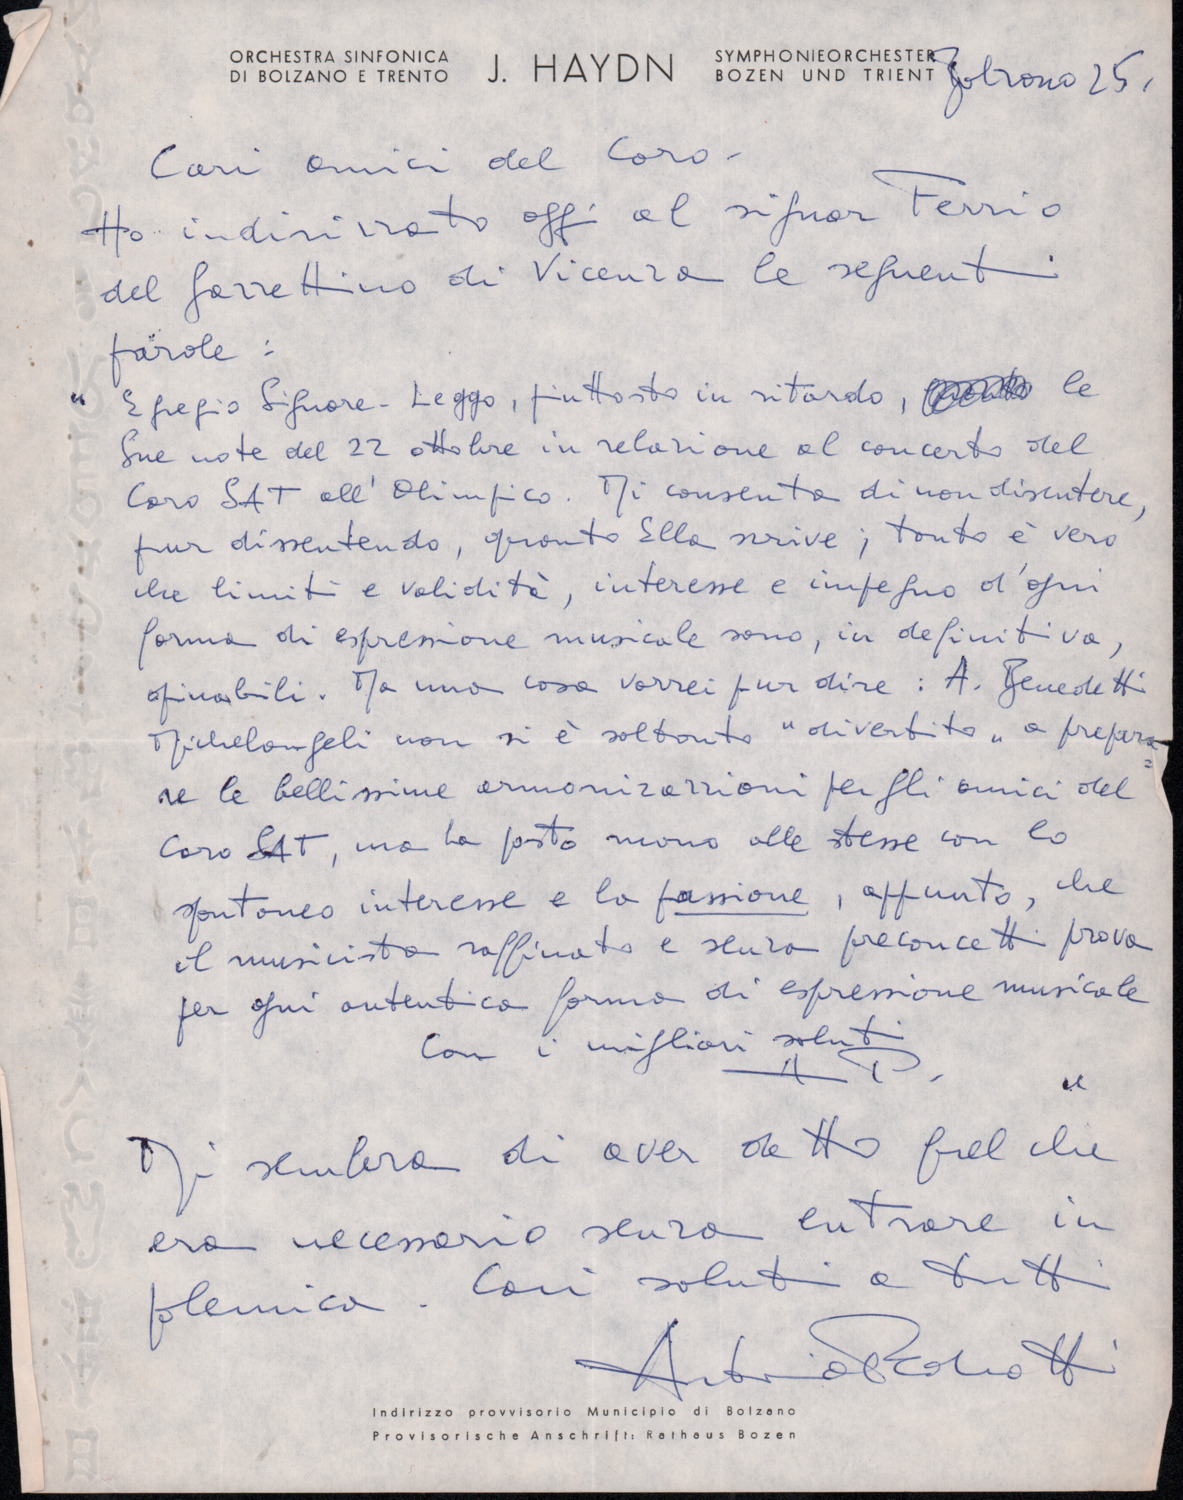 ORCHESTRA SINFONICA
DI BOLZANO E TRENTO
J. HAYDN
SYMPHONIEORCHESTER
BOZEN UND TRIENT
Bolzano 25.
Cari amici del Coro -
Ho indirizzato oggi al signor Ferrio
del Gazzettino di Vicenza le seguenti
parole :
" Egregio Signore - Leggo, piuttosto in ritardo, le
Sue note del 22 ottobre in relazione al concerto del
Coro SAT all'Olimpico. Mi consenta di non discutere,
pur dissentendo, quanto Ella scrive ; tanto è vero
che limiti e validità, interesse e impegno d'ogni
forma di espressione musicale sono, in definitiva,
opinabili. Ma una cosa vorrei pur dire : A. Benedetti
Michelangeli non si è soltanto "divertito" a prepara=
re le bellissime armonizzazioni per gli amici del
Coro SAT, ma ha posto mano alle stesse con lo
spontaneo interesse e la passione, appunto, che
il musicista raffinato e senza preconcetti prova
per ogni autentica forma di espressione musicale
Con i migliori saluti
A P. "
Mi sembra di aver detto quel che
era necessario senza entrare in
polemica. Cari saluti a tutti
Antonio Pedrotti
Indirizzo provvisorio Municipio di Bolzano
Provisorische Anschrift: Rathaus Bozen